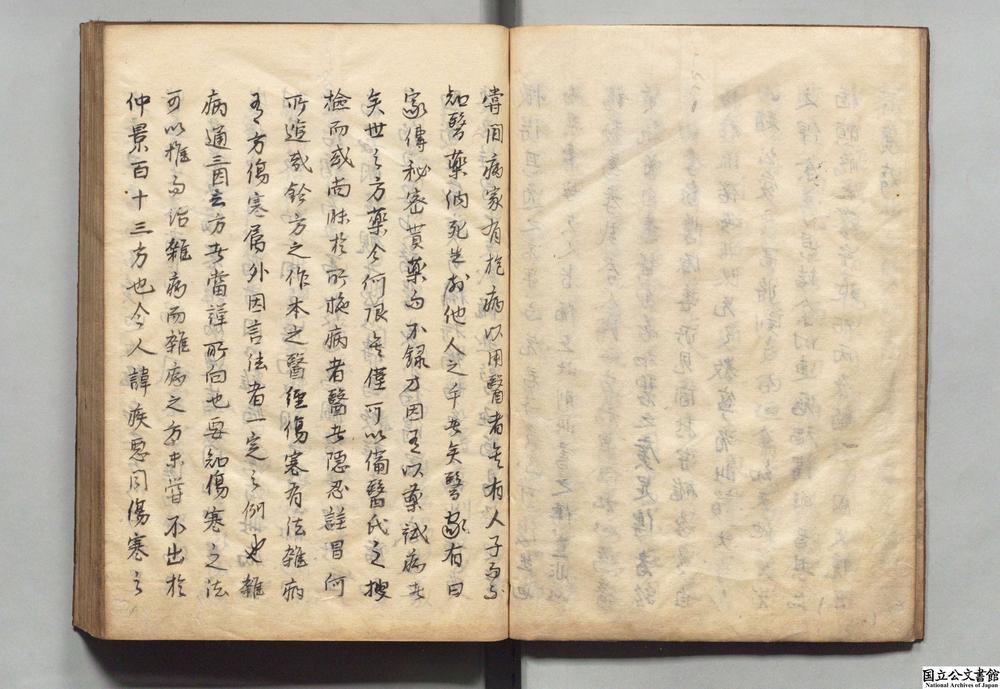 嘗用病家有抱病以用醫者矣有人子而不
知醫藥佀死生於他人之手者矣醫家有曰
家傳秘密貨藥而不錄方因是以藥試病者
矣世之方藥今何限哉僅可以備醫氏之搜
檢而或尚昧於所施病者醫者隱忍詿冒何
所逭哉於方之作本之醫經傷寒有法雜病
有方傷寒屬外因言法者一定之例也雜
病通三因言方者當謹所向也毋知傷寒之法
可以推而治雜病而雜病之方未嘗不出於
仲景百十三方也今人諱疾惡聞傷寒之
国立公文書館
National Archives of Japan